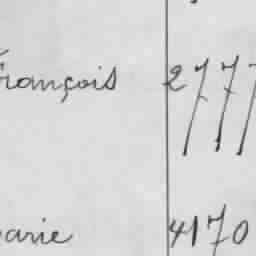 François 2777
arie 4170